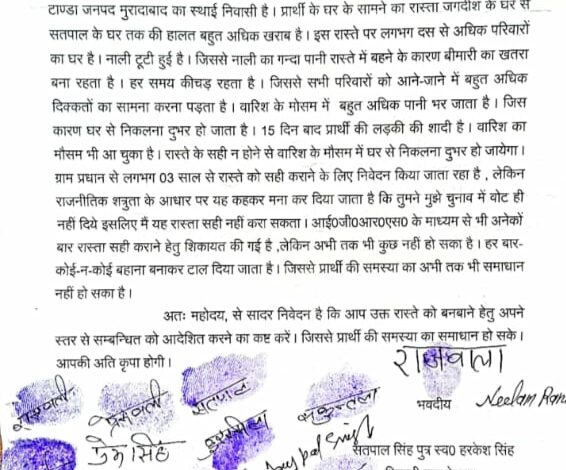 टाण्डा जनपद मुरादाबाद का स्थाई निवासी है। प्रार्थी के घर के सामने का रास्ता जगदीश के घर से
सतपाल के घर तक की हालत बहुत अधिक खराब है। इस रास्ते पर लगभग दस से अधिक परिवारों
का घर है। नाली टूटी हुई है। जिससे नाली का गन्दा पानी रास्ते में बहने के कारण बीमारी का खतरा
बना रहता है। हर समय कीचड़ रहता है। जिससे सभी परिवारों को आने-जाने में बहुत अधिक
दिक्कतों का सामना करना पड़ता है। वारिश के मोसम में बहुत अधिक पानी भर जाता है। जिस
कारण घर से निकलना दुभर हो जाता है। 15 दिन बाद प्रार्थी की लड़की की शादी है। वारिश का
मौसम भी आ चुका है। रास्ते के सही न होने से वारिश के मौसम में घर से निकलना दुभर हो जायेगा।
ग्राम प्रधान से लगभग 03 साल से रास्ते को सही कराने के लिए निवेदन किया जाता रहा है, लेकिन
राजनीतिक शत्रुता के आधार पर यह कहकर मना कर दिया जाता है कि तुमने मुझे चुनाव में वोट ही
नहीं दिये इसलिए मैं यह रास्ता सही नहीं करा सकता। आई0जी0आर0एस0 के माध्यम से भी अनेकों
बार रास्ता सही कराने हेतु शिकायत की गई है ,लेकिन अभी तक भी कुछ नहीं हो सका है। हर बार-
कोई-न-कोई बहाना बनाकर टाल दिया जाता है। जिससे प्रार्थी की समस्या का अभी तक भी समाधान
नहीं हो सका है।
अतः महोदय, से सादर निवेदन है कि आप उक्त रास्ते को बनबाने हेतु अपने
स्तर से सम्बन्धित को आदेशित करने का कष्ट करें। जिससे प्रार्थी की समस्या का समाधान हो सके।
आपकी अति कृपा होगी।
राजवाला
भवदीय Neelam Rani
सतपाल
शकुन्तला
प्रेम सिंह
सतपाल सिंह पुत्र स्व0 हरकेश सिंह